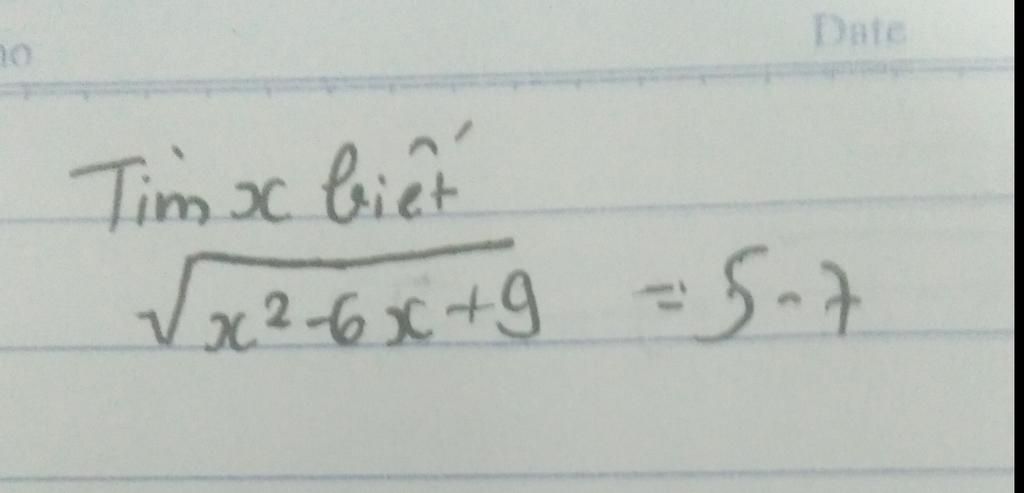 no
Date
Tìm x biết
√x²-6x+9 = 5-7